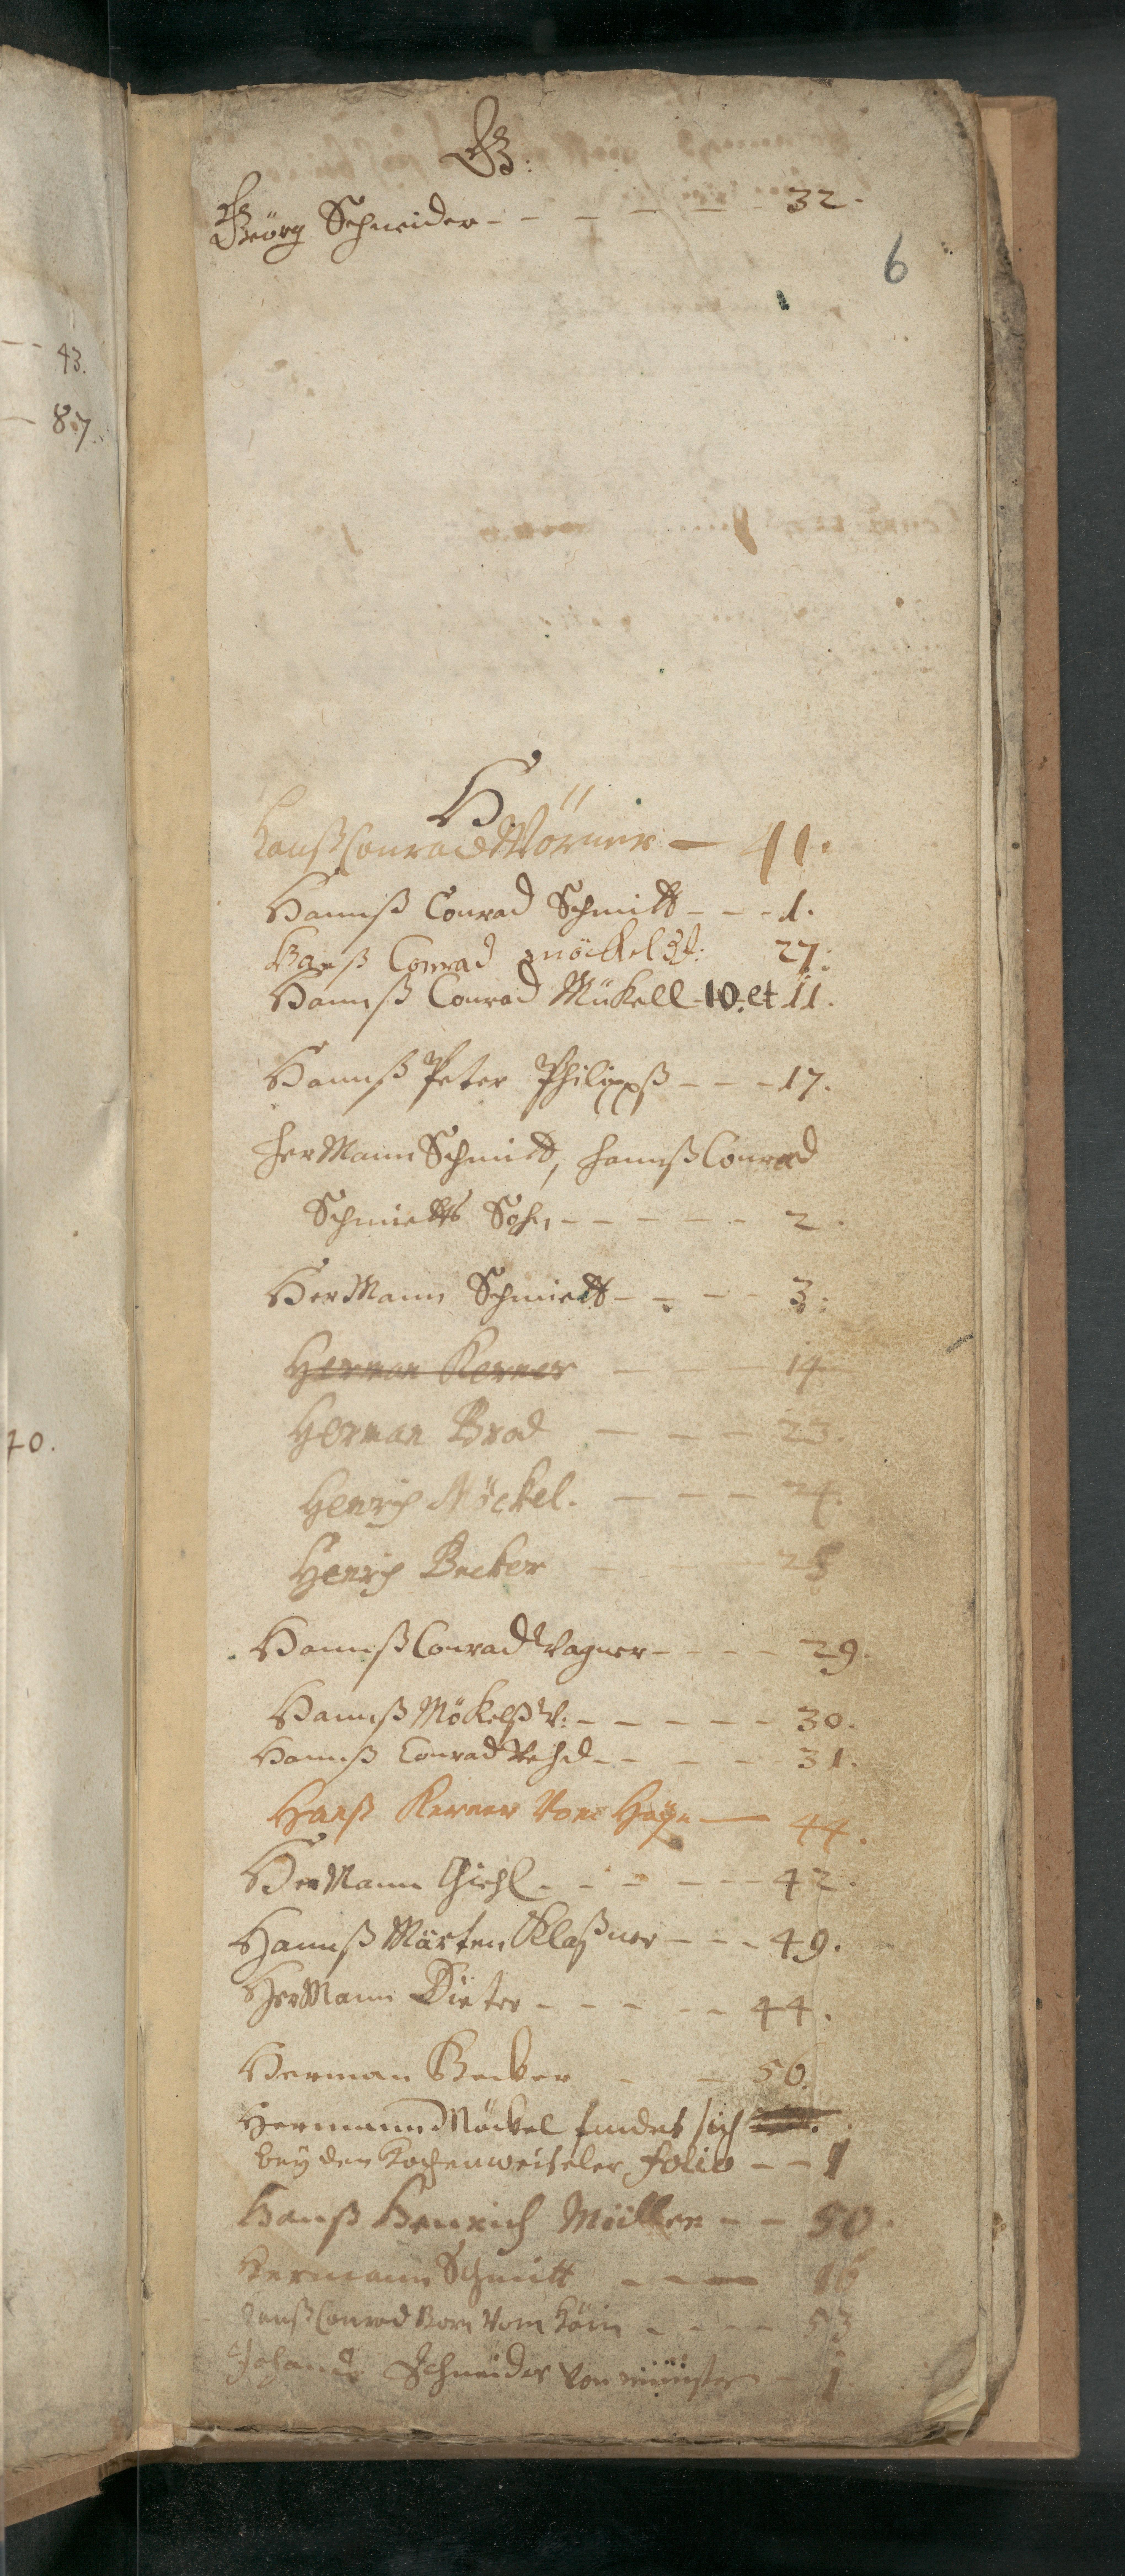 G:
Geörg Schneider - - - - - - 32.
6
43.
87.
H
Hanß Conrad Wörner — 41.
Hannß Conrad Schmitt - - - 1.
Hanß Conrad möckel 27:
Hannß Conrad Mükell 10. et 11.
Hannß Peter Philippß - - - 17.
HerMann Schmidt, Hannß Conrad
Schmietts Sohn - - - - - 2.
HerMann Schmiett - - - - 3:
Herman Kerner — — 14
Herman Brod — — — 23.
Henrich Möckel. — — — 24.
Henrich Becker — — — 25
40.
Hannß Conrad Wagner - - - - 29.
Hannß Mökelß W: - - - - - 30.
Hannß Conrad - - - - 31.
Hanß Kerner Vom — 44.
HerMann Giehl - - - - - 42.
Hannß Märten Klaßner - - - 49.
HerMann Dieter - - - - - 44.
Herman Becker - - 56.
Hermann Möckel findet sich
bey den Hochenweiseler folio - - 1
Hanß Henrich Müller - - 50.
Hermann Schmitt - - — 16
Hanß Conrad Born Vom - - - - 53
Johannes Schneider von münster - 1